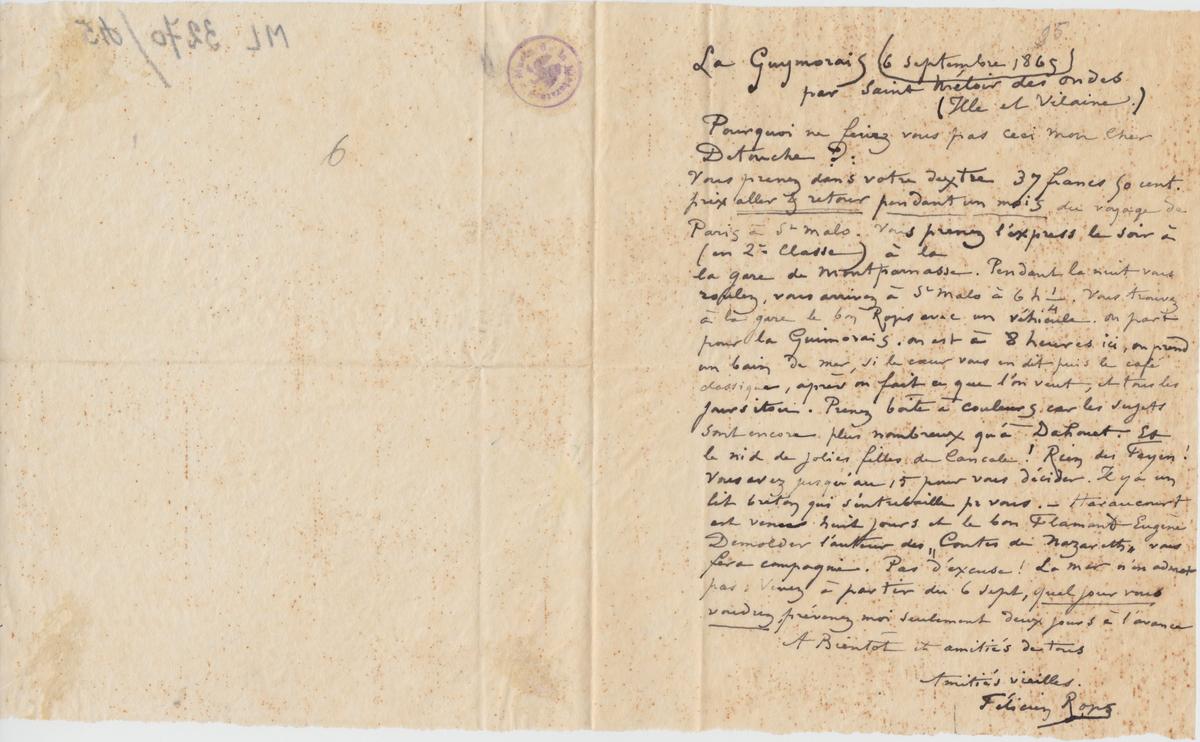 ML 3270/95
6
95
La Guymorais (6 septembre 1865)
par Saint Méloir des ondes
(Ille et Vilaine.)
Pourquoi ne feriez vous pas ceci mon Cher
Detouche ?:
Vous prenez dans votre dextre 37 francs 50 cent.
prix aller & retour pendant un mois du voyage de
Paris à St Malo. Vous prenez l'express le soir à
(en 2e Classe) à la
la gare de Montparnasse. Pendant la nuit vous
roulez, vous arrivez à St Malo à 6 h 1/4. Vous trouvez
à la gare le bon Rops avec un véhicule. on part
pour la Guimorais. on est à 8 heures ici, on prend
un bain de mer, si le cœur vous en dit puis le café
classique, après on fait ce que l'on veut, et tous les
jours itou. Prenez boîte à couleurs car les sujets
sont encore plus nombreux qu'à Dahouet. Et
le nid de jolies filles de Cancale ! Rien des Feyen !
Vous avez jusqu'au 15 pour vous décider. Il y a un
lit breton qui s'entrebaille pr vous. – Haraucourt
est venu huit jours et le bon Flamand Eugène
Demolder l'auteur des „Contes de Nazareth" vous
fera compagnie. Pas d'excuse ! La mer n'en admet
pas. Venez à partir du 6 sept, quel jour vous
voudrez, prévenez moi seulement deux jours à l'avance
A Bientôt et amitiés de tous
Amitiés vieilles.
Félicien Rops